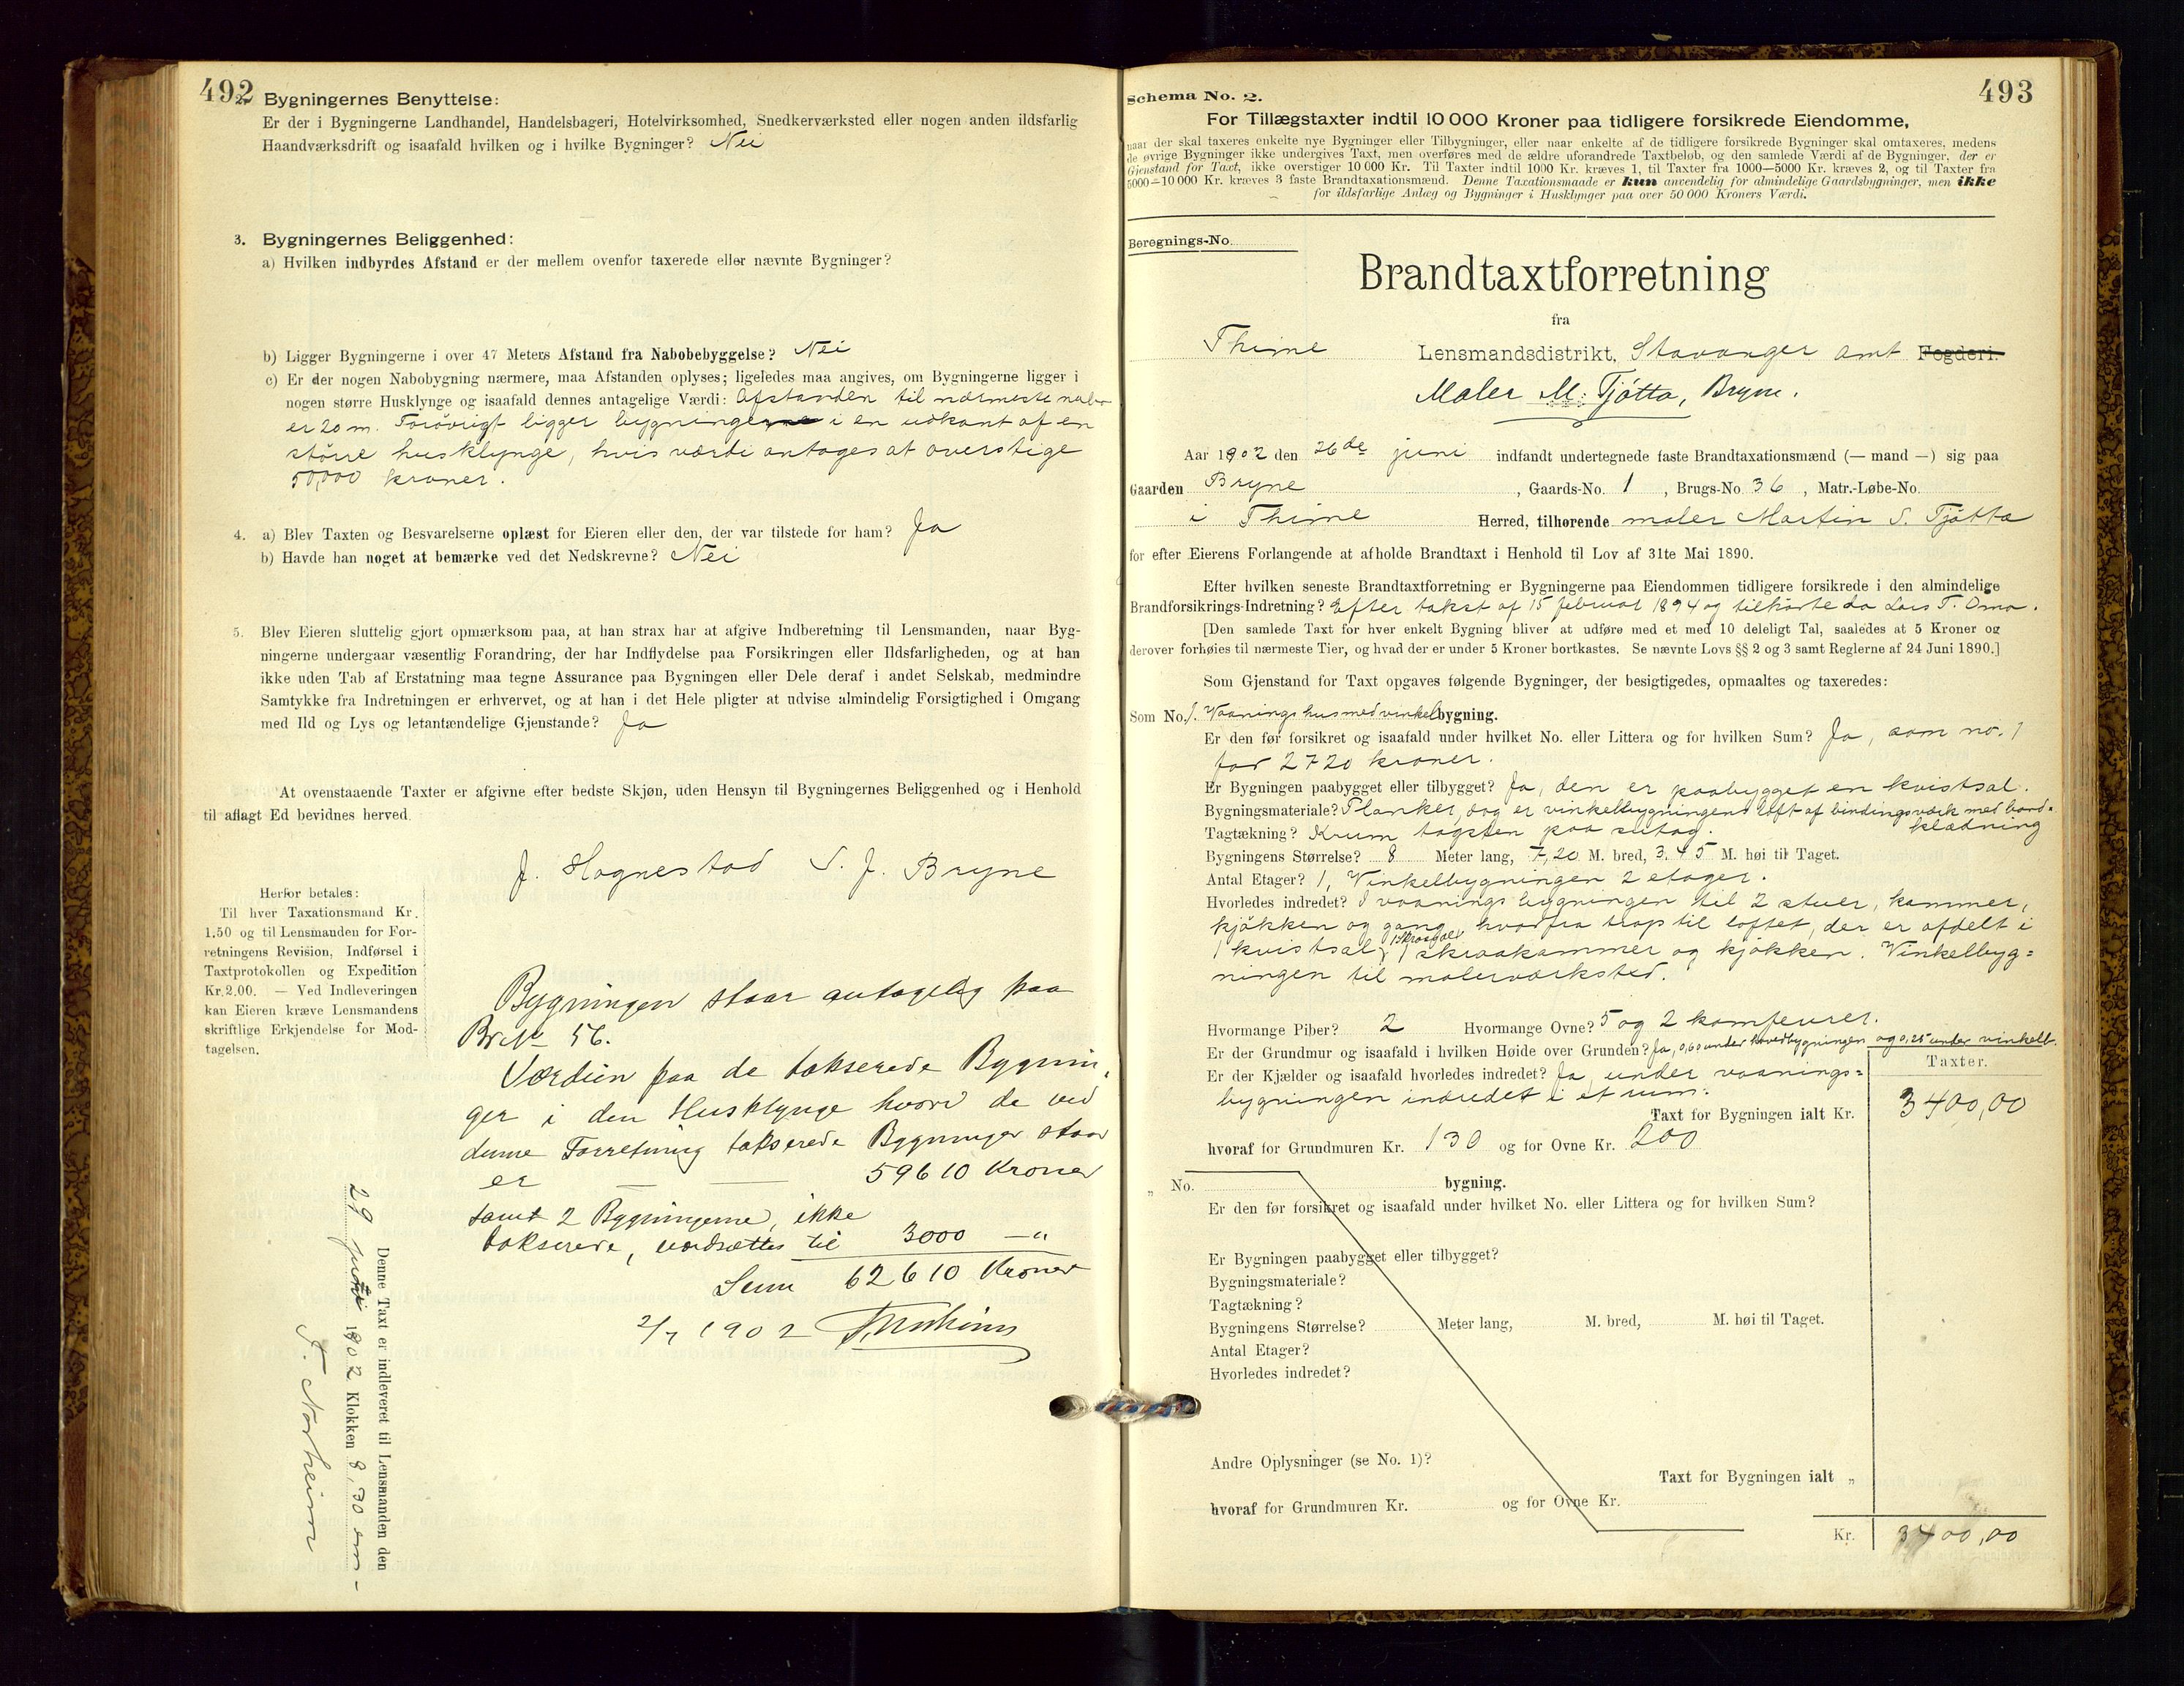 492
2. Bygningernes Benyttelse:
Er der i Bygningerne Landhandel, Handelsbageri, Hotelvirksomhed, Snedkerværksted eller nogen anden ildsfarlig
Haandværksdrift og isaafald hvilken og i hvilke Bygninger? Nei
3. Bygningernes Beliggenhed:
a) Hvilken indbyrdes Afstand er der mellem ovenfor taxerede eller nævnte Bygninger?
b) Ligger Bygningerne i over 47 Meters Afstand fra Nabobebyggelse? Nei
c) Er der nogen Nabobygning nærmere, maa Afstanden oplyses; ligeledes maa angives, om Bygningerne ligger i
nogen større Husklynge og isaafald dennes antagelige Værdi: Afstanden til nærmeste nabo
er 20 m. Forøvrigt ligger bygningerne i en udkant af en
større husklynge, hvis værdi antages at overstige
50,000 kroner.
4. a) Blev Taxten og Besvarelserne oplæst for Eieren eller den, der var tilstede for ham? Ja
b) Havde han noget at bemærke ved det Nedskrevne? Nei
5. Blev Eieren sluttelig gjort opmærksom paa, at han strax har at afgive Indberetning til Lensmanden, naar Byg-
ningerne undergaar væsentlig Forandring, der har Indflydelse paa Forsikringen eller Ildsfarligheden, og at han
ikke uden Tab af Erstatning maa tegne Assurance paa Bygningen eller Dele deraf i andet Selskab, medmindre
Samtykke fra Indretningen er erhvervet, og at han i det Hele pligter at udvise almindelig Forsigtighed i Omgang
med Ild og Lys og letantændelige Gjenstande? Ja
At ovenstaaende Taxter er afgivne efter bedste Skjøn, uden Hensyn til Bygningernes Beliggenhed og i Henhold
til aflagt Ed bevidnes herved.
J. Hognestad S. J. Bryne
Herfor betales:
Til hver Taxationsmand Kr.
1.50 og til Lensmanden for For-
retningens Revision, Indførsel i
Taxtprotokollen og Expedition
Kr. 2.00. — Ved Indleveringen
kan Eieren kræve Lensmandens
skriftlige Erkjendelse for Mod-
tagelsen.
Bygningen staar antagelig paa
Br № 56.
Værdien paa de takserede Bygnin-
ger i den Husklynge hvori de ved
denne Forretning takserede Bygninger staar
er — — 59610 Kroner
samt 2 Bygningerne, ikke
takserede, værdsættes til 3000 —"
Sum 62610 Kroner
2/7 1902
Denne Taxt er indleveret til Lensmanden den
29 juni 1902 Klokken 8,30 em
T. Norheim
493
Schema No. 2.
For Tillægstaxter indtil 10 000 Kroner paa tidligere forsikrede Eiendomme,
naar der skal taxeres enkelte nye Bygninger eller Tilbygninger, eller naar enkelte af de tidligere forsikrede Bygninger skal omtaxeres, medens
de øvrige Bygninger ikke undergives Taxt, men overføres med de ældre uforandrede Taxtbeløb, og den samlede Værdi af de Bygninger, der er
Gjenstand for Taxt, ikke overstiger 10 000 Kr. Til Taxter indtil 1000 Kr. kræves 1, til Taxter fra 1000—5000 Kr. kræves 2, og til Taxter fra
5000—10 000 Kr. kræves 3 faste Brandtaxationsmænd. Denne Taxationsmaade er kun anvendelig for almindelige Gaardsbygninger, men ikke
for ildsfarlige Anlæg og Bygninger i Husklynger paa over 50 000 Kroners Værdi.
Beregnings-No.
Brandtaxtforretning
fra
Thime Lensmandsdistrikt, Stavanger amt Fogderi.
Maler M. Tjøtta, Bryne.
Aar 1902 den 26de juni indfandt undertegnede faste Brandtaxationsmænd (— mand —) sig paa
Gaarden Bryne, Gaards-No. 1, Brugs-No. 36, Matr.-Løbe-No.
i Thime Herred, tilhørende maler Martin S. Tjøtta
for efter Eierens Forlangende at afholde Brandtaxt i Henhold til Lov af 31te Mai 1890.
Efter hvilken seneste Brandtaxtforretning er Bygningerne paa Eiendommen tidligere forsikrede i den almindelige
Brandforsikrings-Indretning? Efter takst af 15 februar 1894 og tilhørte da Lars T. Oma.
[Den samlede Taxt for hver enkelt Bygning bliver at udføre med et med 10 deleligt Tal, saaledes at 5 Kroner og
derover forhøies til nærmeste Tier, og hvad der er under 5 Kroner bortkastes. Se nævnte Lovs §§ 2 og 3 samt Reglerne af 24 Juni 1890.]
Som Gjenstand for Taxt opgaves følgende Bygninger, der besigtigedes, opmaaltes og taxeredes:
Som No. 1. Vaaningshus med vinkelbygning.
Er den før forsikret og isaafald under hvilket No. eller Littera og for hvilken Sum? Ja, som no. 1
for 2720 kroner.
Er Bygningen paabygget eller tilbygget? Ja, den er paabygget en kvistsal.
Bygningsmateriale? Planker, dog er vinkelbygningens loft af bindingsværk med bord-
klædning
Tagtækning? Krum tagsten paa sutag.
Bygningens Størrelse? 8 Meter lang, 7,20 M. bred, 3,45 M. høi til Taget.
Antal Etager? 1, Vinkelbygningen 2 etager.
Hvorledes indredet? I vaaningsbygningen til 2 stuer, kammer,
kjøkken og gang hvorfra trap til loftet, der er afdelt i
1 kvistsal, 1 skraakammer og kjøkken. Vinkelbyg=
ningen til malerværksted.
Hvormange Piber? 2 Hvormange Ovne? 5 og 2 komfeurer.
Er der Grundmur og isaafald i hvilken Høide over Grunden? Ja, 0,60 under hovedbygningen og 0,25 under vinkelb.
Er der Kjælder og isaafald hvorledes indredet? Ja, under vaanings=
bygningen indredet i et rum.
Taxter.
Taxt for Bygningen ialt Kr. 3400,00
hvoraf for Grundmuren Kr. 130 og for Ovne Kr. 200
„ No. bygning.
Er den før forsikret og isaafald under hvilket No. eller Littera og for hvilken Sum?
Er Bygningen paabygget eller tilbygget?
Bygningsmateriale?
Tagtækning?
Bygningens Størrelse? Meter lang, M. bred, M. høi til Taget.
Antal Etager?
Hvorledes indredet?
Andre Oplysninger (se No. 1)?
Taxt for Bygningen ialt „
hvoraf for Grundmuren Kr. og for Ovne Kr.
Kr. 3400,00